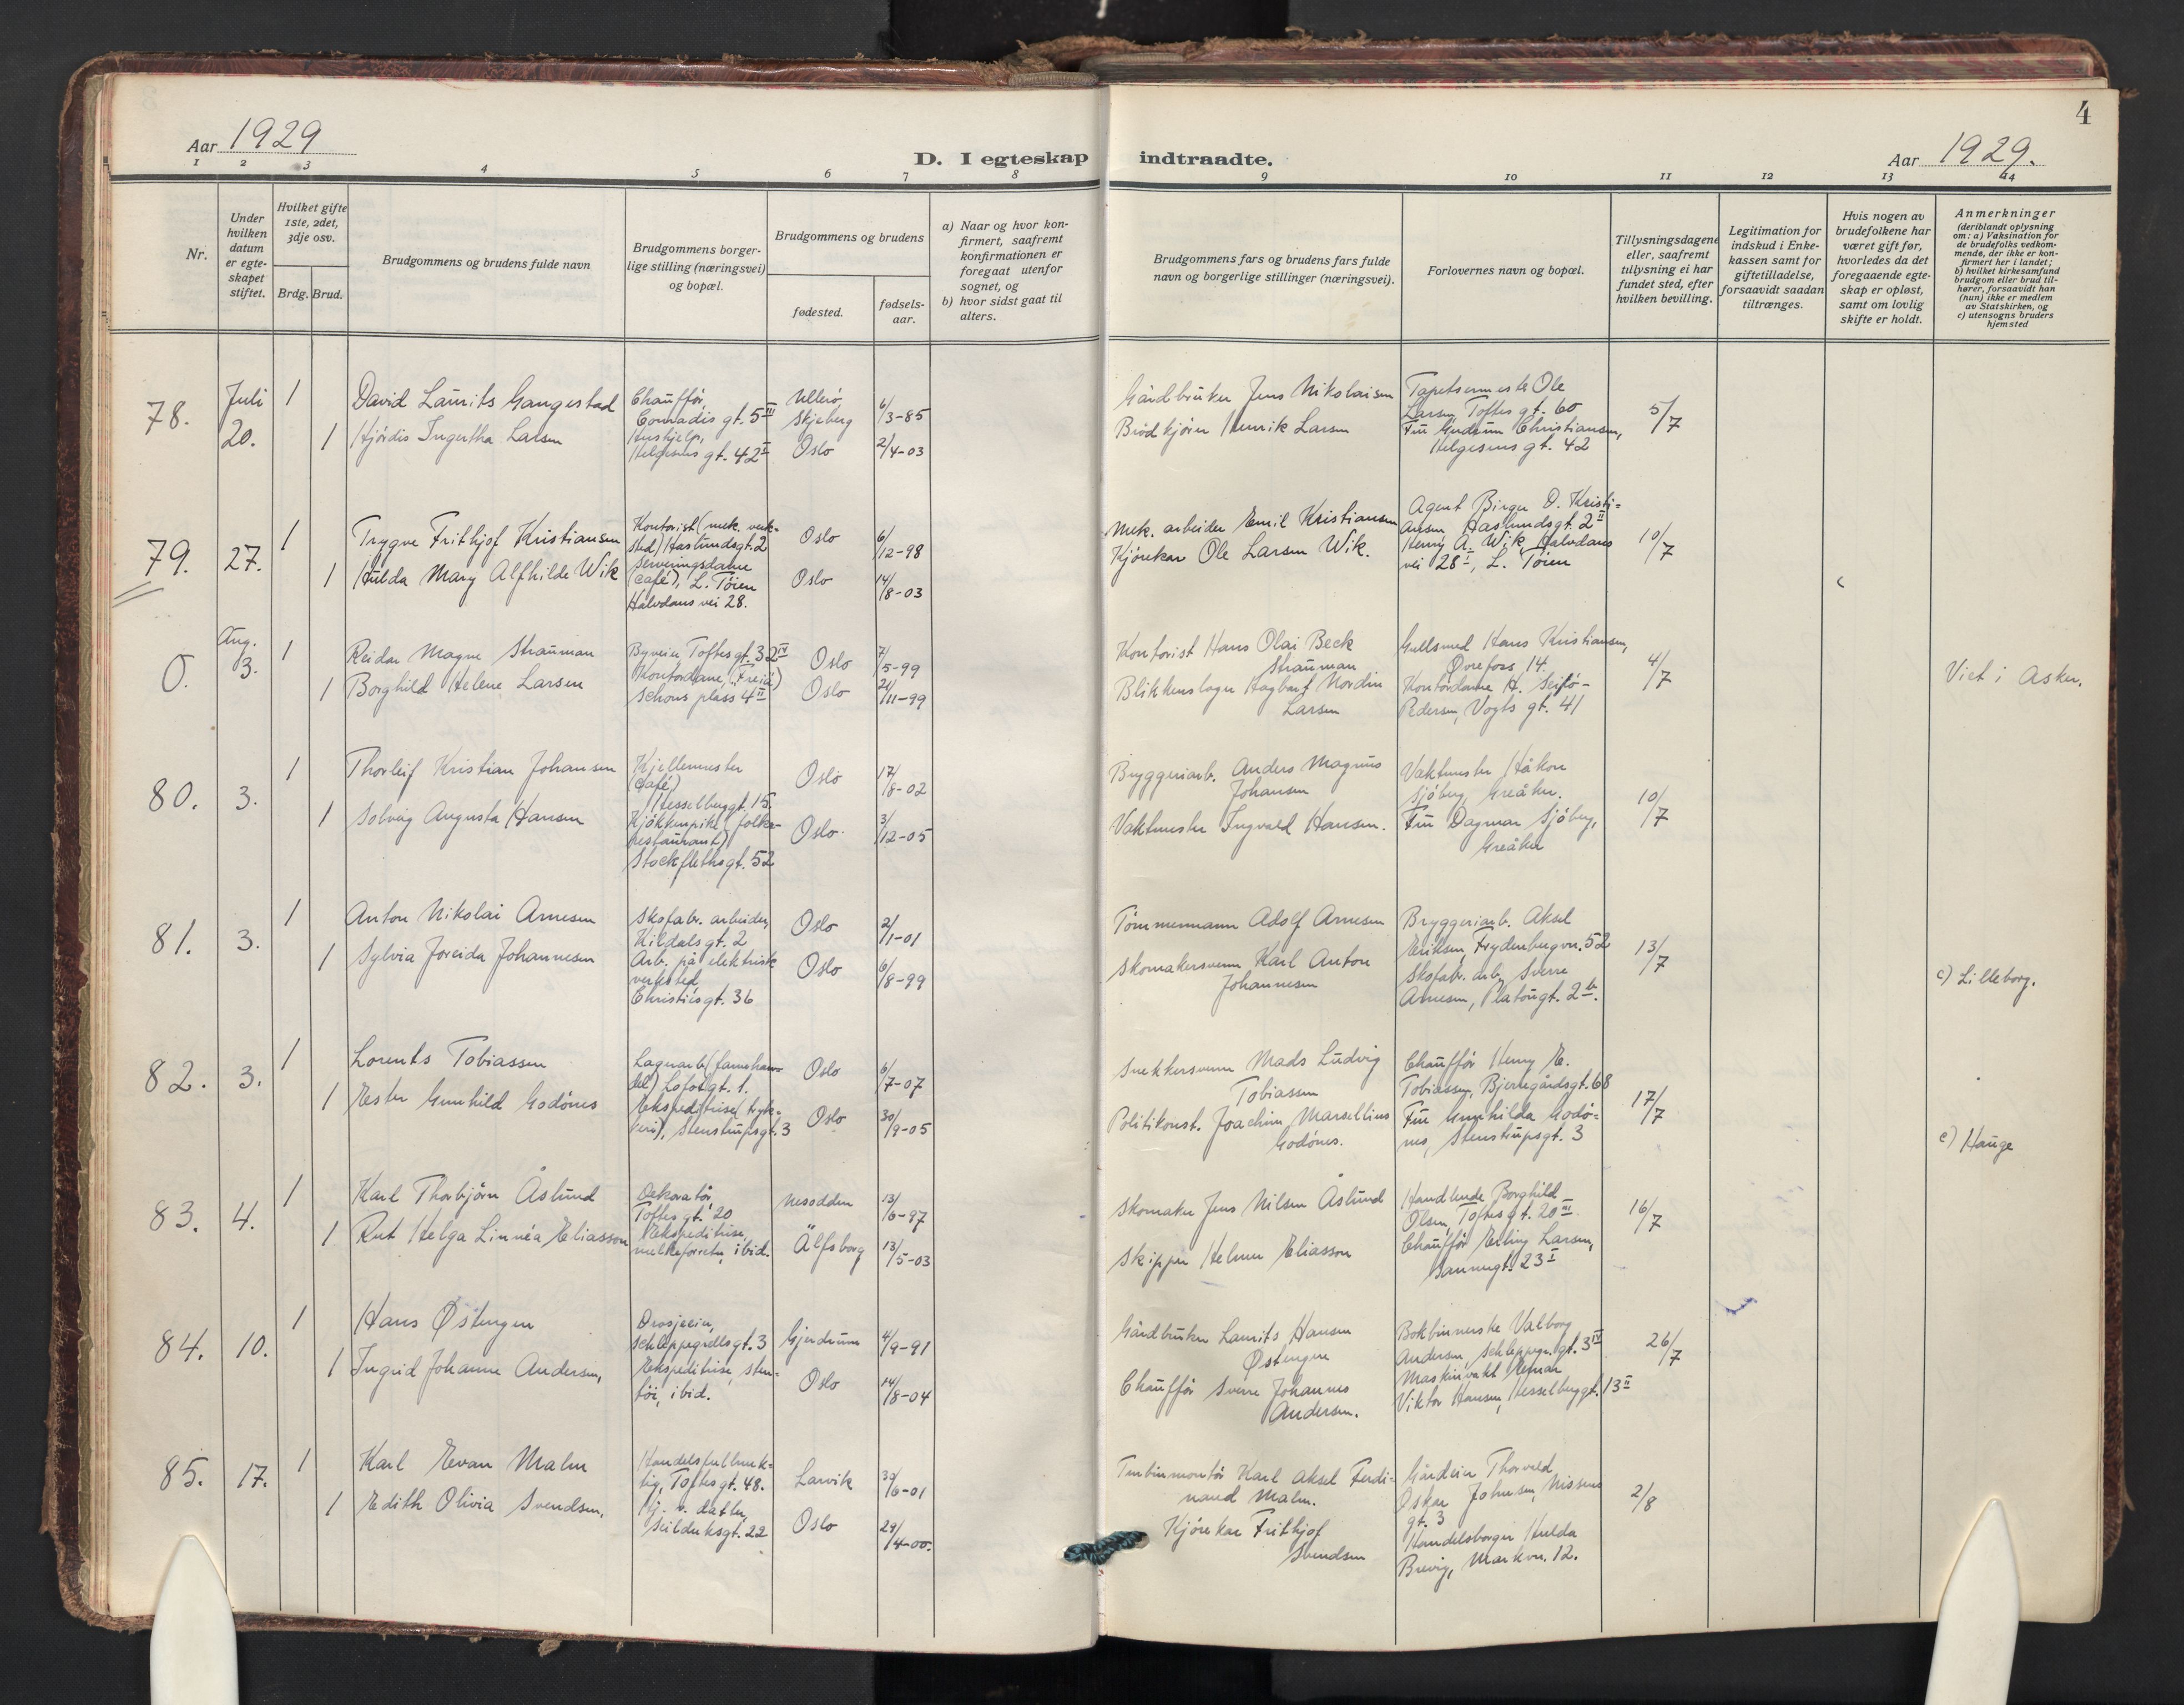 4
Aar 1929
D. I egteskap indtraadte.
Aar 1929.
1 2 3 4 5 6 7 8 9 10 11 12 13 14
Nr.
Under hvilken datum er egte-skapet stiftet.
Hvilket gifte 1ste, 2det, 3dje osv.
Brdg. Brud.
Brudgommens og brudens fulde navn
Brudgommens borger-lige stilling (næringsvei) og bopæl.
Brudgommens og brudens
fødested.
fødsels-aar.
a) Naar og hvor kon-firmert, saafremt konfirmationen er foregaat utenfor sognet, og
b) hvor sidst gaat til alters.
Brudgommens fars og brudens fars fulde navn og borgerlige stillinger (næringsvei).
Forlovernes navn og bopæl.
Tillysningsdagene eller, saafremt tillysning ei har fundet sted, efter hvilken bevilling.
Legitimation for indskud i Enke-kassen samt for giftetilladelse, forsaavidt saadan tiltrænges.
Hvis nogen av brudefolkene har været gift før, hvorledes da det foregaaende egte-skap er opløst, samt om lovlig skifte er holdt.
Anmerkninger (deriblandt oplysning om: a) Vaksination for de brudefolks vedkom-mende, der ikke er kon-firmert her i landet; b) hvilket kirkesamfund brudgom eller brud til-hører, forsaavidt han (hun) ikke er medlem av Statskirken, og c) utensogns bruders hjemsted
78. Juli 20. 1 David Laurits Gangestad
Chauffør, Conradis gt. 5 III
Ullerö, Skjeberg
6/3-85
Gårdbruker Jens Nikolaisen
Tapetsermester Ole Larsen, Toftes gt. 60
5/7
1 Hjördis Ingertha Larsen
Hushjelp, Helgesens gt. 42 II
Oslo
2/4-03
Brödkjörer Henrik Larsen
Fru Gudrun Christiansen, Helgesens gt. 42
79. 27. 1 Trygve Frithjof Kristiansen
Kontorist (mek. verk-sted) Haslundsgt. 2
Oslo
6/12-98
Mek. arbeider Emil Kristiansen
Agent Birger O. Kristi-ansen, Haslundsgt. 2 II
10/7
1 Hulda Mary Alfhilde Wik
Serveringsdame (café), L. Töien Halvdans vei 28.
Oslo
14/8-03
Kjörekar Ole Larsen Wik.
Henry A. Wik, Halvdans vei 28 I, L. Töien
0. Aug. 3. 1 Reidar Magne Strauman
Toftes gt. 32 IV
Oslo
7/5-99
Kontorist Hans Olai Beck Strauman
Gullsmed Hans Kristiansen, Øvrefoss 14
4/7
Viet i Asker.
1 Borghild Helene Larsen
Kontordame, (Freia) Schous plass 4 II
Oslo
24/11-99
Blikkenslager Hagbart Nordin Larsen
Kontordame A. Pedersen, Vogts gt. 41
80. 3. 1 Thorleif Kristian Johansen
Kjellermester (Café) Hesselberggt. 15.
Oslo
17/8-02
Bryggeriarb. Anders Magnus Johansen
Vaktmester Håkon Sjöberg, Greåker.
10/7
1 Solveig Augusta Hansen
Kjökkenpike (folke-restaurant) Stockflethsgt. 52
Oslo.
3/12-05
Vaktmester Ingvald Hansen.
Fru Dagmar Sjöberg, Greåker
81. 3. 1 Anton Nikolai Arnesen
Skofabr. arbeider, Kildals gt. 2
Oslo
2/1-01
Tömmermann Adolf Arnesen
Bryggeriarb. Aksel Eriksen, Frydenbergvn. 52
13/7
1 Sylvia Joreida Johannesen
Arb. på elektrisk verksted Christiesgt. 36
Oslo
6/8-99
Skomakersvenn Karl Anton Johannesen
Skofabr. arb. Sverre Arnesen, Platougt. 2 b.
c) Lilleborg.
82. 3. 1 Lorents Tobiassen
Lofotgt. 1.
Oslo
6/7-07
Snekkersvenn Mads Ludvig Tobiassen
Chauffør Henry E. Tobiassen, Bjerregårdsgt. 68
17/7
1 Ester Gunhild Godönes
Ekspeditrise (tryk-keri), Stenstrupsgt. 3
Oslo
30/9-05
Politikonst. Joachim Marsellius Godönes.
Fru Gunhilda Godö-nes, Stenstrupsgt. 3
c) Hauge
83. 4. 1 Karl Thorbjörn Åslund
Dekoratör, Toftes gt. 20
Nesodden
13/6-97
Skomaker Jens Nilsen Åslund
Handlende Borghild Olsen, Toftes gt. 20 III
16/7
1 Rut Helga Linnéa Eliasson
Ekspeditrise, melkeforretn., ibid.
Älfsborg
13/5-03
Skipper Helmer Eliasson
Chauffør Erling Larsen, Sannergt. 23 I
84. 10. 1 Hans Østengen
Drosjeeier, Schleppegrellsgt. 3
Gjerdrum
4/9-91
Gårdbruker Laurits Hansen Østengen
Bokbinnerske Valborg Andersen, Schleppegr. gt. 3 IV
26/7
1 Ingrid Johanne Andersen,
Ekspeditrise, sten-töi, ibid.
Oslo
14/8-04
Chauffør Sverre Johannes Andersen.
Maskinvakt Einar Viktor Hansen, Hesselberggt. 13 II
85. 17. 1 Karl Evan Malm
Handelsfullmek-tig, Toftes gt. 48.
Larvik
30/6-01
Turbinmontör Karl Aksel Ferdi-nand Malm.
Gårdeier Thorvald Oskar Johnsen, Nissens gt. 3
2/8
1 Edith Olivia Svendsen,
Hj. v. datter, Seilduksgt. 22
Oslo
29/4-00.
Kjörekar Frithjof Svendsen
Handelsborger Hulda Brevig, Markvn. 12.